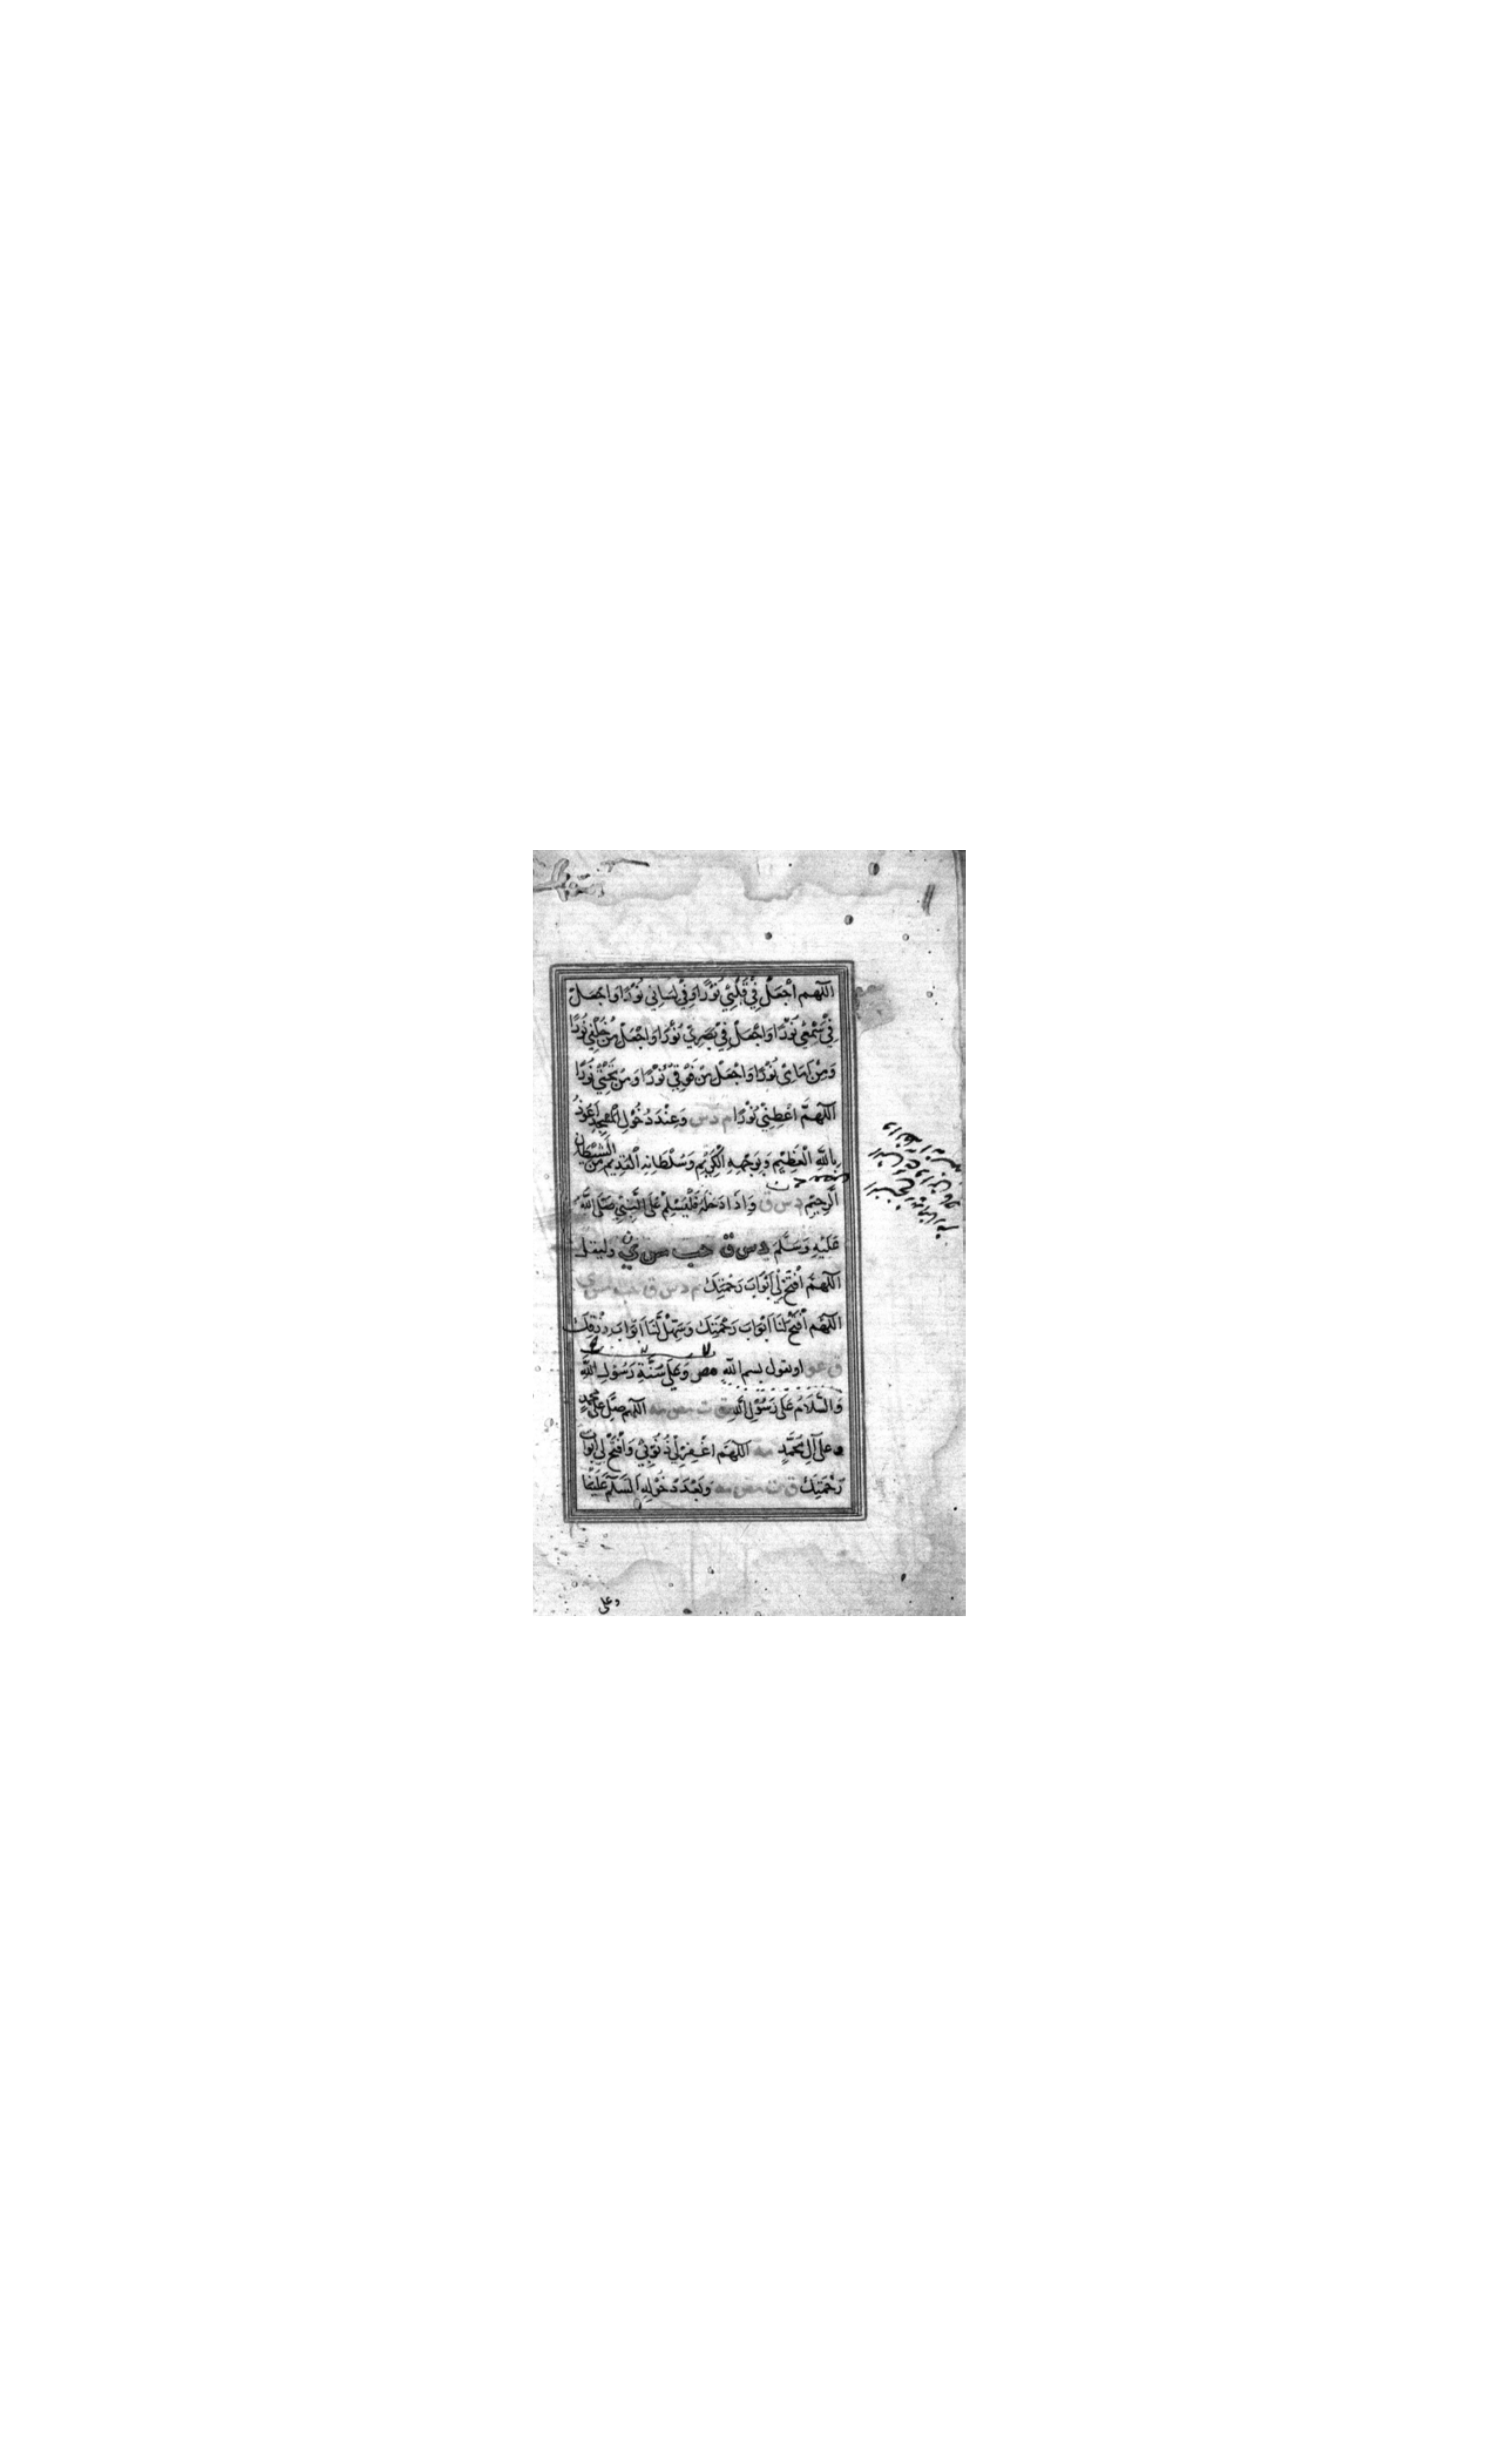 اللهم اجْعَلْ فِيْ قَلْبِيْ نُوْرًا وَفِيْ لِسَانِي نُوْرًا وَاجْعَلْ
فِيْ سَمْعِيْ نُوْرًا وَاجْعَلْ فِيْ بَصَرِيْ نُوْرًا وَاجْعَلْ مِنْ خَلْفِيْ نُوْرًا
وَمِنْ اَمَامِيْ نُوْرًا وَاجْعَلْ مِنْ فَوْقِيْ نُوْرًا وَمِنْ تَحْتِيْ نُوْرًا
اللهُمَّ اعْطِنِيْ نُوْرًا م د س وَعِنْدَ دُخُوْلِ الْمَسْجِدِ اَعُوْذُ
بِاللهِ الْعَظِيْمِ وَبِوَجْهِهِ الْكَرِيْمِ وَسُلْطَانِهِ الْقَدِيْمِ مِنَ الشَّيْطَانِ
الرَّجِيْمِ د س ق وَاِذَا دَخَلَهُ فَلْيُسَلِّمْ عَلَى النَّبِيِّ صَلَّى اللهُ
عَلَيْهِ وَسَلَّمَ د س ق حب مس ي وليقل
اللهم افْتَحْ لِيْ اَبْوَابَ رَحْمَتِكَ م د س ق حب مس ي
اللهُم افْتَحْ لَنَا اَبْوَابَ رَحْمَتِكَ وَسَهِّلْ لَنَا اَبْوَابَ رِزْقِكَ
ق عو او يقول بسم الله مص وَعَلَى سُنَّةِ رَسُوْلِ اللهِ
وَالسَّلَامُ عَلَى رَسُوْلِ اللهِ ق ت مص مه اللهم صَلِّ عَلَى مُحَمَّدٍ
وعلى آلِ مُحَمَّدٍ مه اللهُمَّ اغْفِرْ لِيْ ذُنُوْبِيْ وَافْتَحْ لِيْ اَبْوَابَ
رَحْمَتِكَ ق ت مص مه وَبَعْدَ دُخُوْلِهِ اَلسَّلَامُ عَلَيْنَا
وعلى